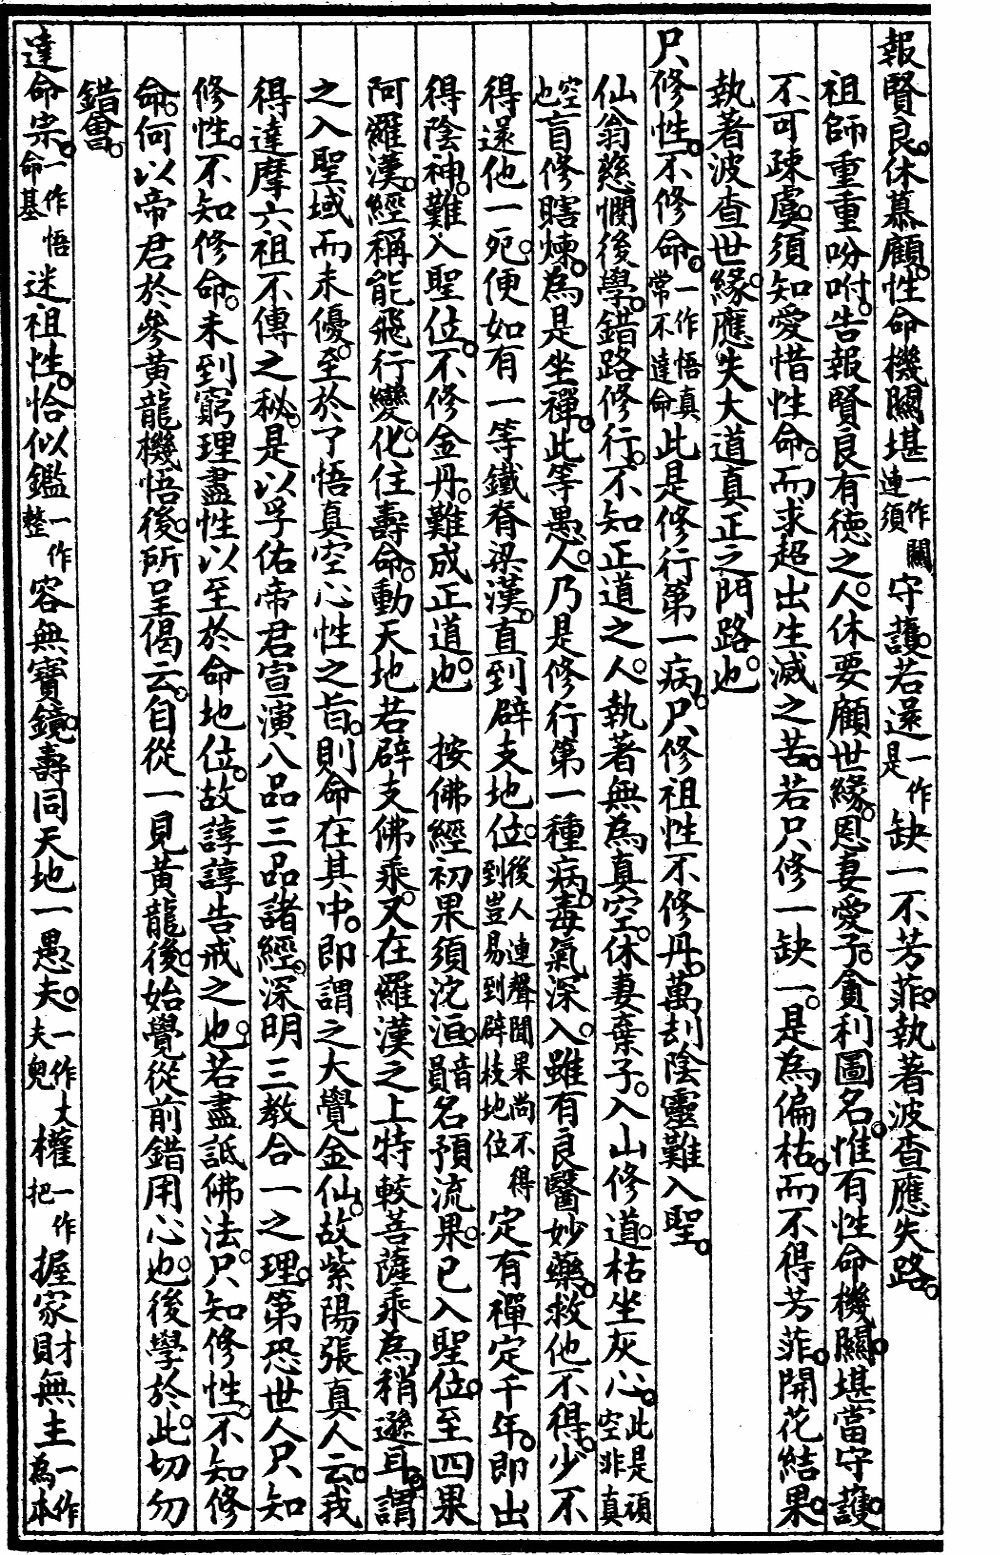 報賢良。休慕顧。性命機關堪一作關連須守護。若還一作是缺一不芳菲。執著波查應失路。
祖師重重吩咐。告報賢良有德之人。休要顧世緣。恩妻愛子。貪利圖名。惟有性命機關。堪當守護。
不可疎虞。須知愛惜性命。而求超出生滅之苦。若只修一缺一。是為偏枯。而不得芳菲。開花結果。
執著波查世緣。應失大道真正之門路也。
只修性。不修命。一作悟真常不達命此是修行第一病。只修祖性不修丹。萬刦陰靈難入聖。
仙翁慈憫後學。錯路修行。不知正道之人。執著無為真空。休妻棄子。入山修道。枯坐灰心。此是頑空非真
空也盲修瞎煉。為是坐禪。此等愚人。乃是修行第一種病。毒氣深入。雖有良醫妙藥。救他不得。少不
得還他一死。便如有一等鐵脊梁漢。直到辟支地位。後人連聲聞果尚不得到豈易到辟枝地位定有禪定千年。即出
得陰神。難入聖位。不修金丹。難成正道也。　按佛經初果須沱洹。音員名預流果。已入聖位。至四果
阿羅漢。經稱能飛行變化。住壽命。動天地。若辟支佛乘。又在羅漢之上。特較菩薩乘為稍遜耳。謂
之入聖域而未優。至於了悟真空心性之旨。則命在其中。即謂之大覺金仙。故紫陽張真人云。我
得達摩六祖不傳之秘。是以孚佑帝君宣演八品三品諸經。深明三教合一之理。第恐世人只知
修性。不知修命。未到窮理盡性以至於命地位。故諄諄告戒之也。若盡詆佛法。只知修性。不知修
命。何以帝君於參黃龍機悟後。所呈偈云。自從一見黃龍後。始覺從前錯用心也。後學於此。切勿
錯會。
達命宗。一作悟命基迷祖性。恰似鑑一作整容無寶鏡。壽同天地一愚夫。一作大夫兒權一作把握家財無主一作為本